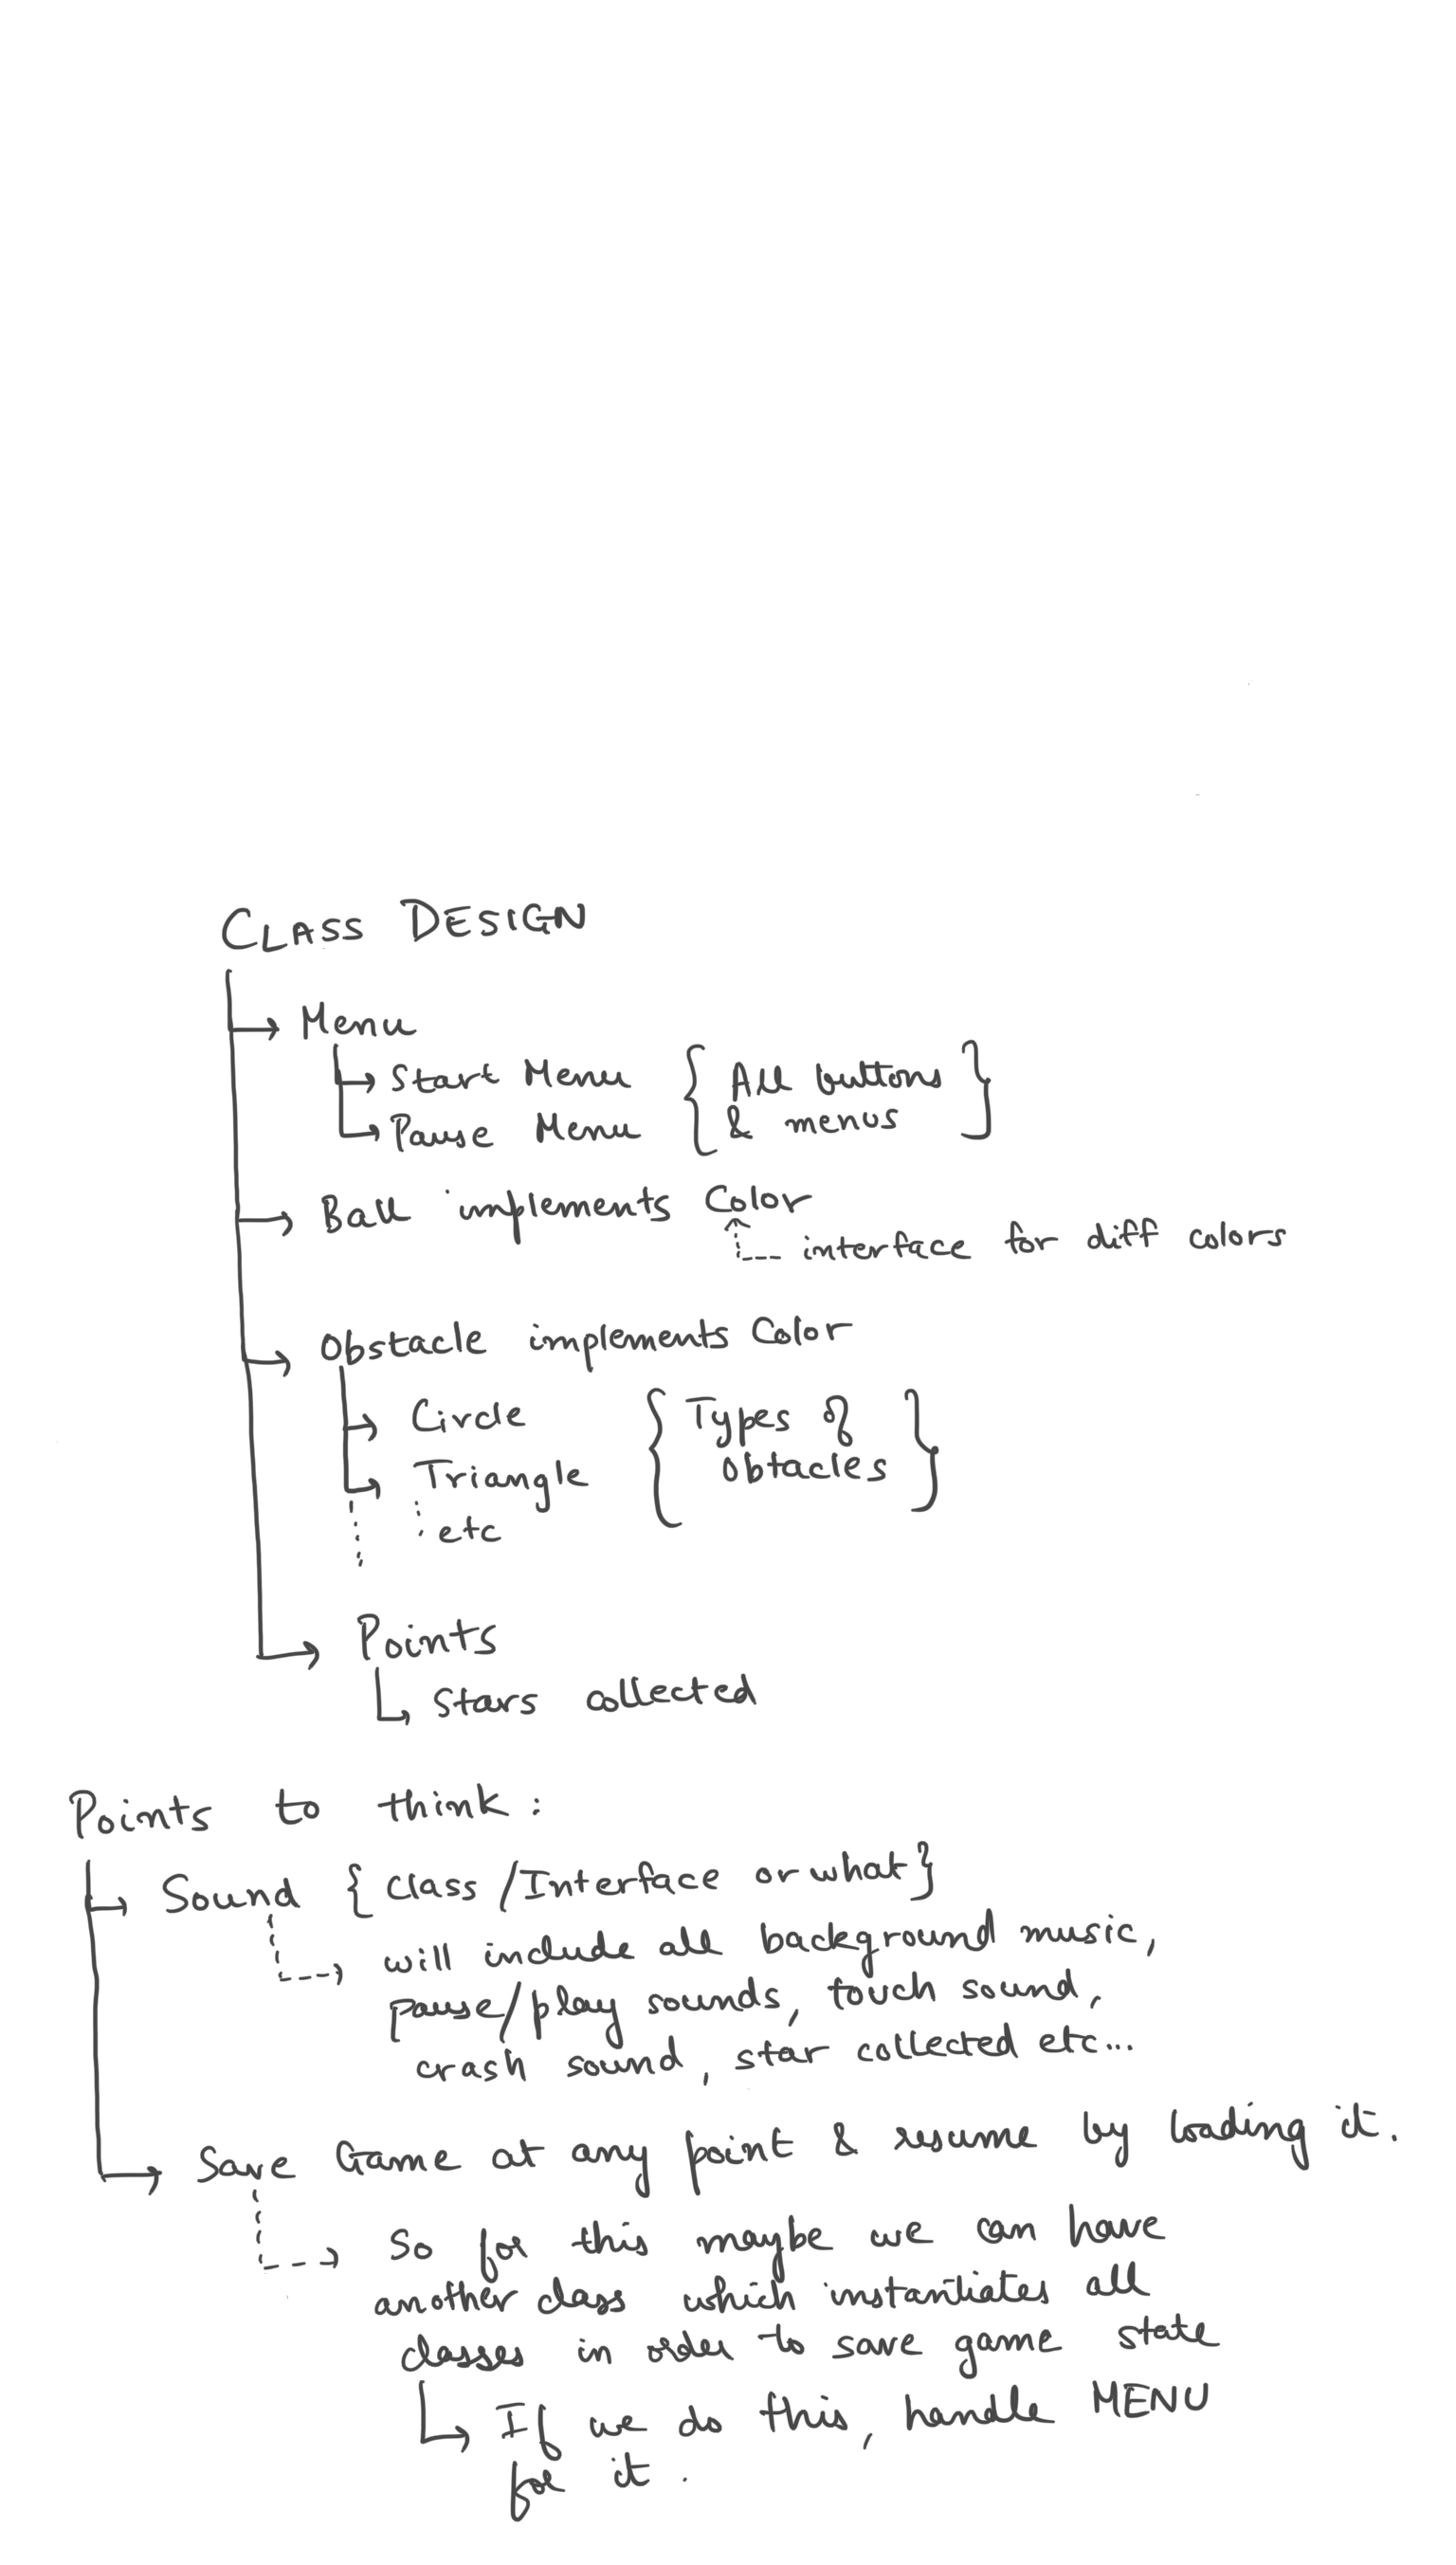 CLASS DESIGN
Menu
Start Menu { All buttons }
Pause Menu & menus
Ball implements Color
interface for diff colors
Obstacle implements Color
Circle { Types of }
Triangle obstacles
etc
Points
Stars collected
Points to think :
Sound { class/Interface or what }
will include all background music,
pause/play sounds, touch sound,
crash sound, star collected etc...
Save Game at any point & resume by loading it.
So for this maybe we can have
another class which instantiates all
classes in order to save game state
If we do this, handle MENU
for it .